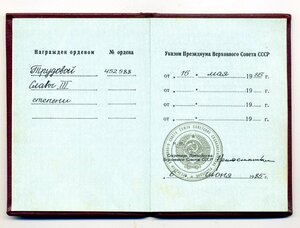 Награжден орденом № ордена
Трудовой 452588
Славы III
степени
Указом Президиума Верховного Совета СССР
от „ 15 “ мая 1985 г.
от „ “ 19 г.
от „ “ 19 г.
от „ “ 19 г.
Секретарь Президиума
Верховного Совета СССР
июня 1985 г.